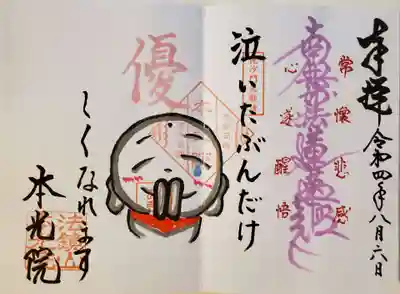 奉拝
令和四年八月六日
常懐悲感
南無妙法蓮華経
心遂醒悟
泣いたぶんだけ
優
しくなれます
本光院